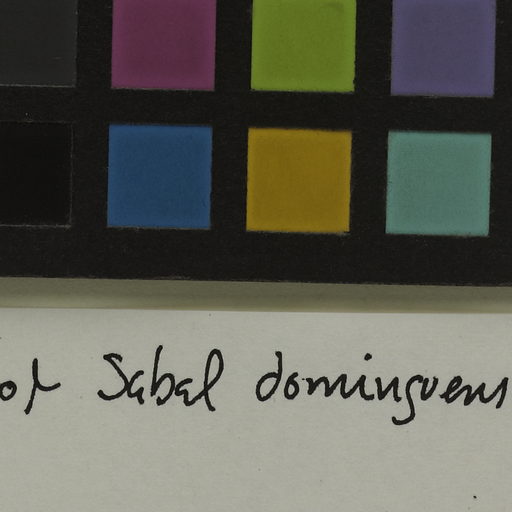 not Sabal dominguens